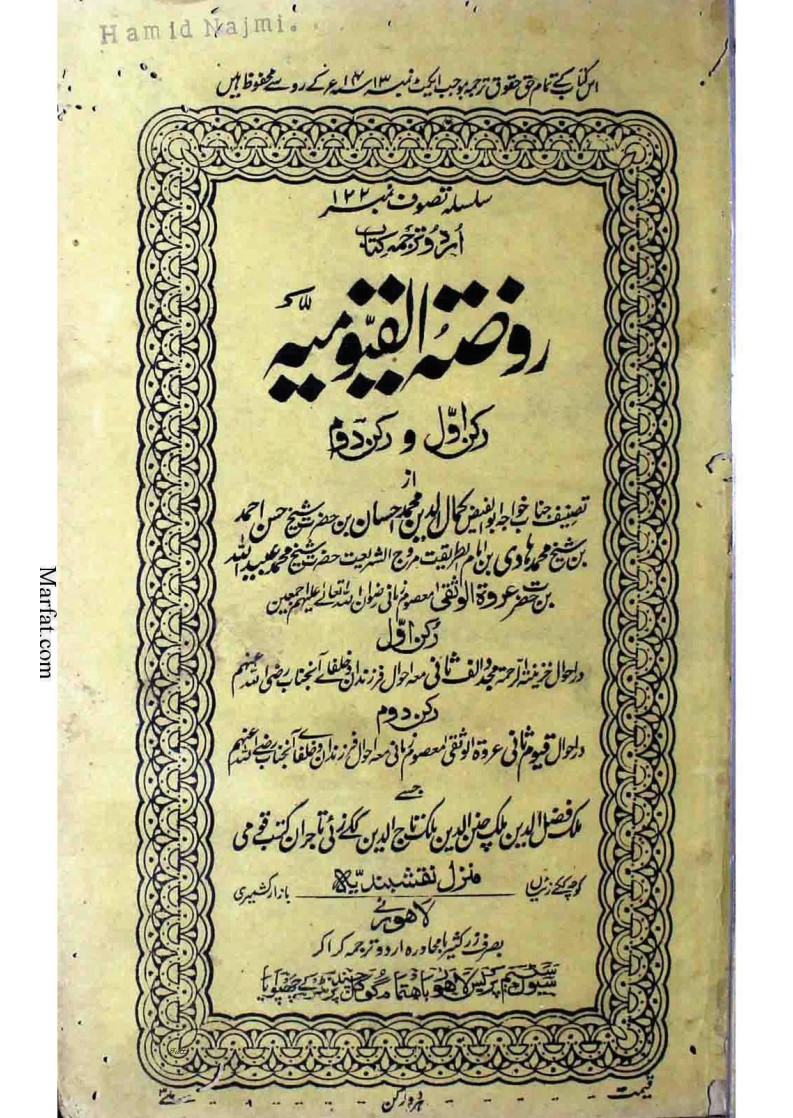 Hamid Najmi.
اس کتاب کے تمام حق حقوق ترجمہ بموجب ایکٹ نمبر ۳ سنہ ۱۹۱۴ء کے رو سے محفوظ ہیں
سلسلہ تصوف نمبر ۱۲۲
اردو ترجمہ کتاب
روضۃ القیومیہ
رکن اوّل و رکن دوم
از
تصنیف جناب خواجہ ابوالفیض کمال الدین محمد احسان بن حضرت شیخ حسن احمد
بن شیخ محمد ہادی بن امام الطریقت مروج الشریعت حضرت شیخ محمد عبید اللہ
بن حضرت عروۃ الوثقیٰ معصوم زمانی رضوان اللہ تعالیٰ علیہم اجمعین
رکن اوّل
در احوال خزینۃ الرحمۃ مجدد الف ثانی معہ احوال فرزندان و خلفائے آنجناب رضی اللہ عنہم
رکن دوم
در احوال قیوم ثانی عروۃ الوثقیٰ معصوم زمانی معہ احوال فرزندان و خلفائے آنجناب رضی اللہ عنہم
جسے
ملک فضل الدین ملک چنن الدین ملک تاج الدین ککے زئی تاجران کتب قومی
منزل نقشبندیہ
کوچہ ککے زئیاں بازار کشمیری
لاہور نے
بصرف زر کثیر بامحاورہ اردو ترجمہ کرا کر
سٹیم پریس لاہور باہتمام
قیمت
ہر دو رکن
Marfat.com